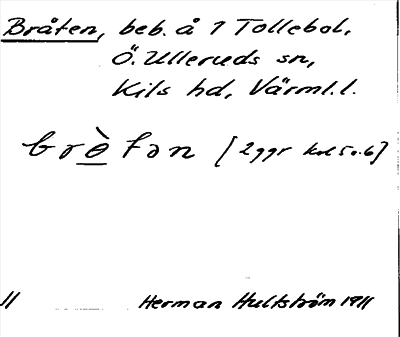 Bråten, beb. å 1 Tollebol,
Ö. Ulleruds sn,
Kils hd, Värml. l.
brὲtən [2 ggr kol 5 o. 6]
11 Herman Hultström 1911